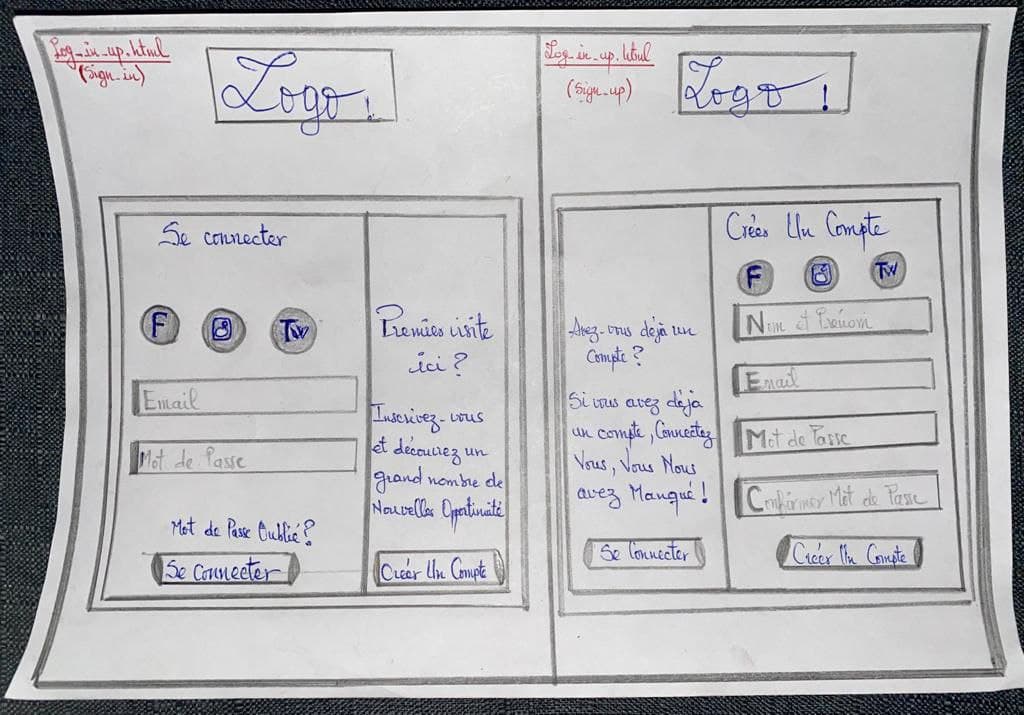 Log_in_up.html
(Sign_in)
Logo!
Se connecter
F
Tw
Email
Mot de Passe
Mot de Passe Oublié?
Se Connecter
Premier visite
ici?
Inscrivez-vous
et découvrez un
grand nombre de
Nouvelles Opportinuité
Créér Un Compte
Log_in_up.html
(Sign_up)
Logo!
Avez-vous déjà un
Compte?
Si vous avez déjà
un compte, Connectez
Vous, Vous Nous
avez Manqué!
Se Connecter
Créer Un Compte
F
Tw
Nom et Prénom
Email
Mot de Passe
Confirmer Mot de Passe
Créér Un Compte